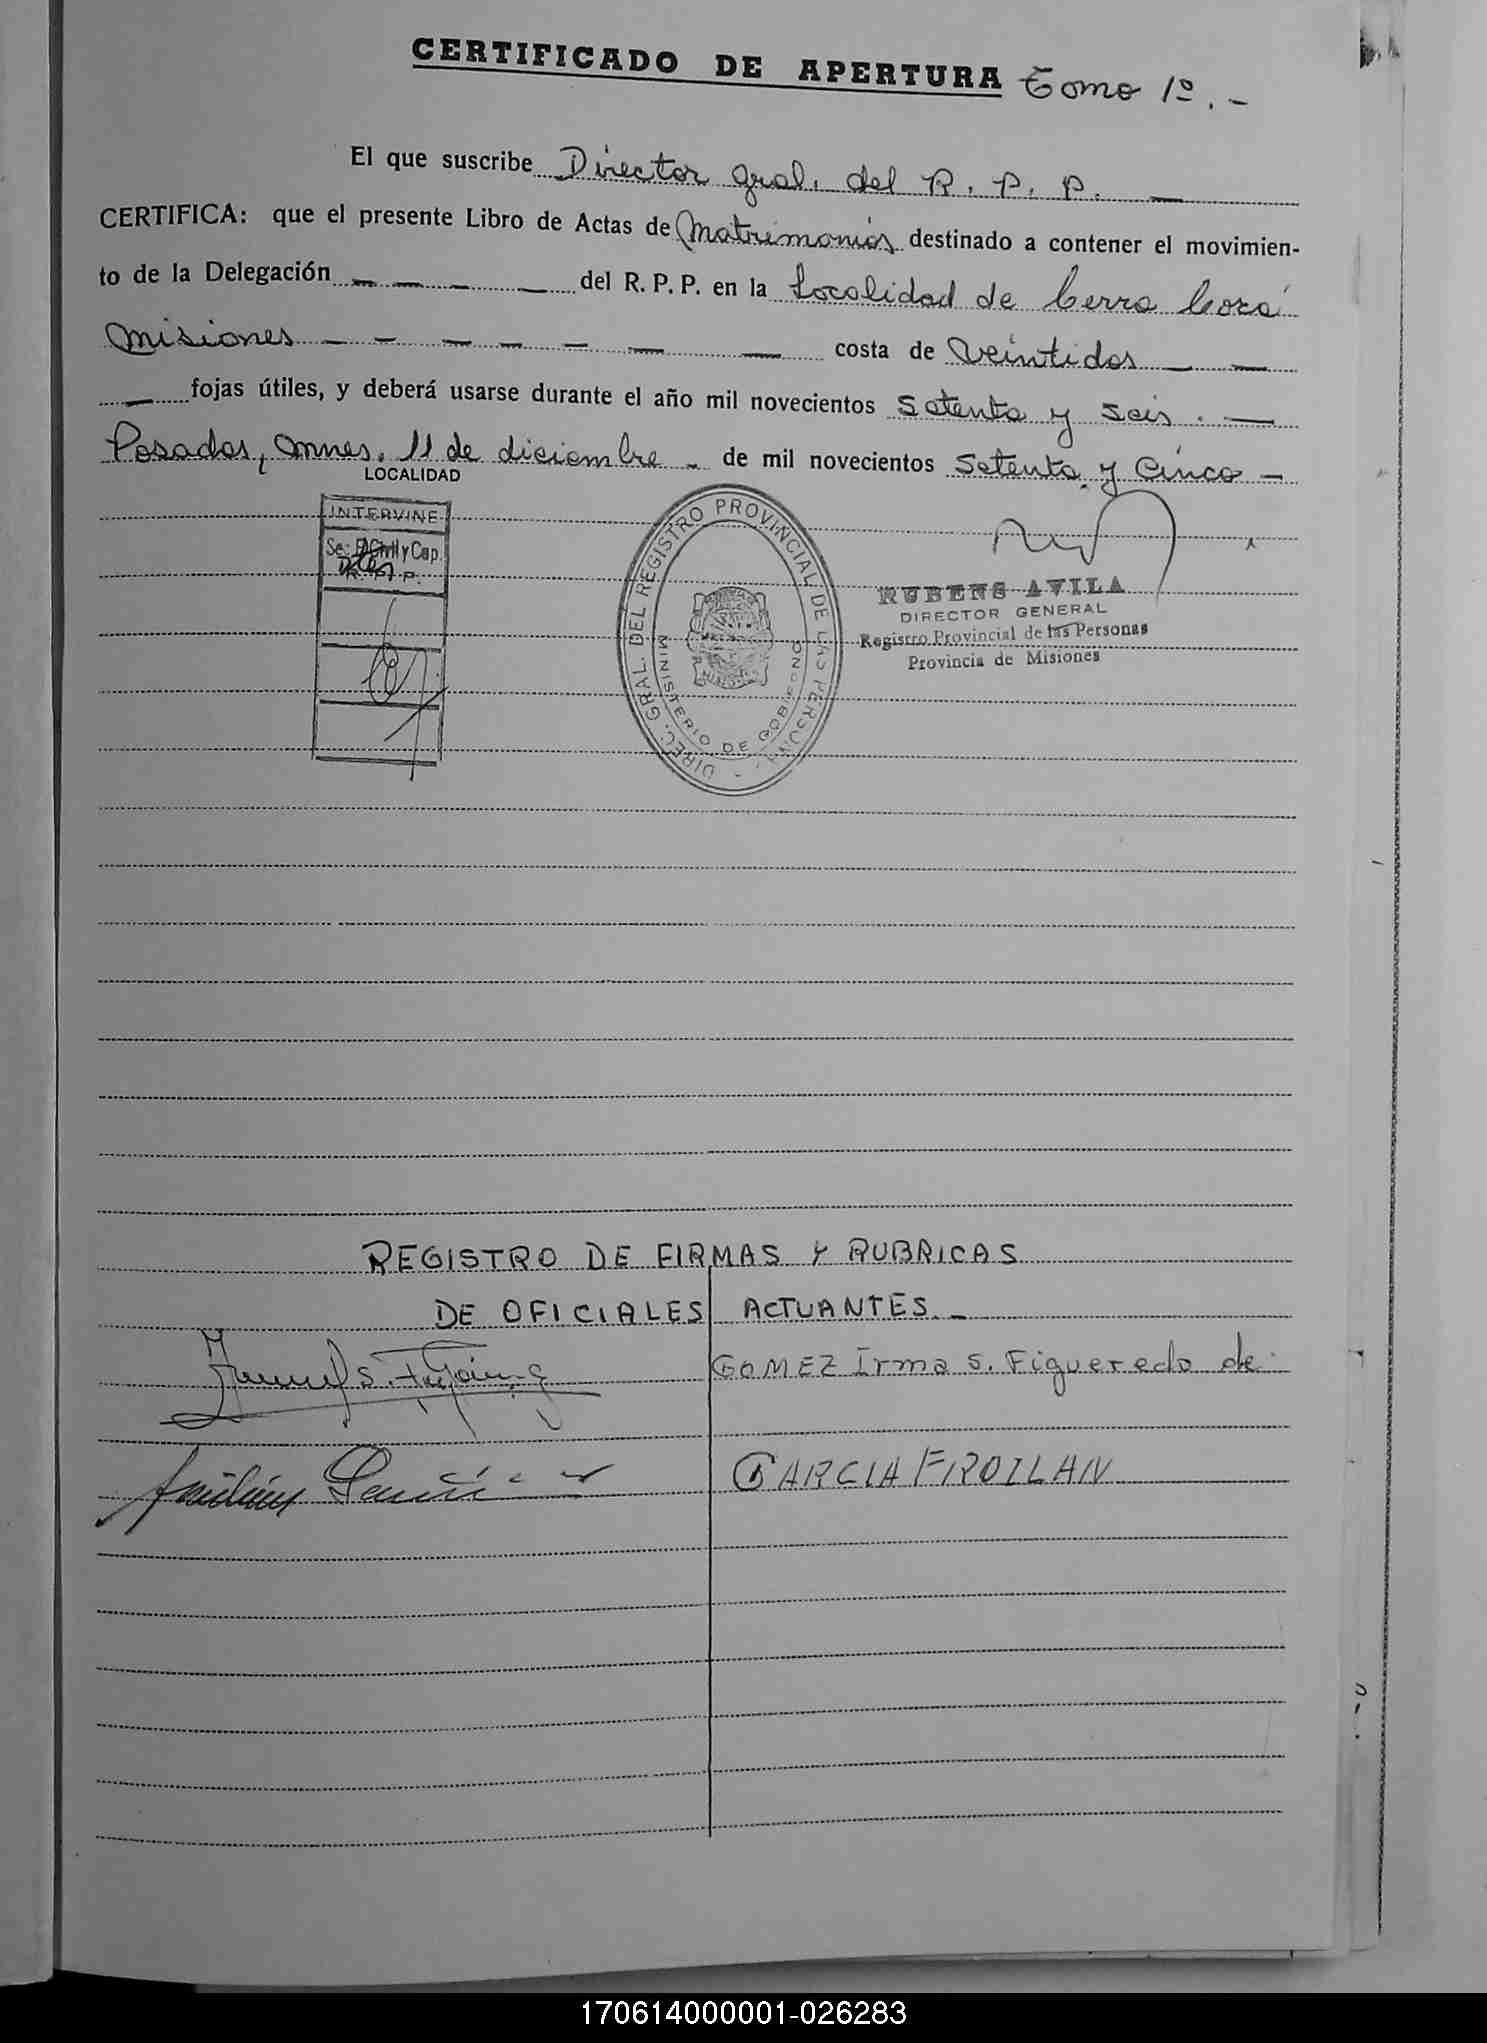 CERTIFICADO DE APERTURA Tomo 1º.-
El que suscribe Director gral. del R. P. P. —
CERTIFICA: que el presente Libro de Actas de Matrimonios destinado a contener el movimien-
to de la Delegación — — — — del R. P. P. en la Localidad de Cerro Corá
Misiones — — — — — — — costa de Veintidos — —
— fojas útiles, y deberá usarse durante el año mil novecientos Setenta y seis. —
Posadas, Mnes, 11 de diciembre - de mil novecientos Setenta y Cinco —
LOCALIDAD
INTERVINE
Sec. Civil y Cap.
R. P. P.
DIREC. GRAL. DEL REGISTRO PROVINCIAL DE LAS PERSONAS
MINISTERIO DE GOBIERNO
RUBENS AVILA
DIRECTOR GENERAL
Registro Provincial de las Personas
Provincia de Misiones
REGISTRO DE FIRMAS Y RUBRICAS
DE OFICIALES ACTUANTES.-
GOMEZ Irma S. Figueredo de
GARCIA FROILAN
170614000001-026283